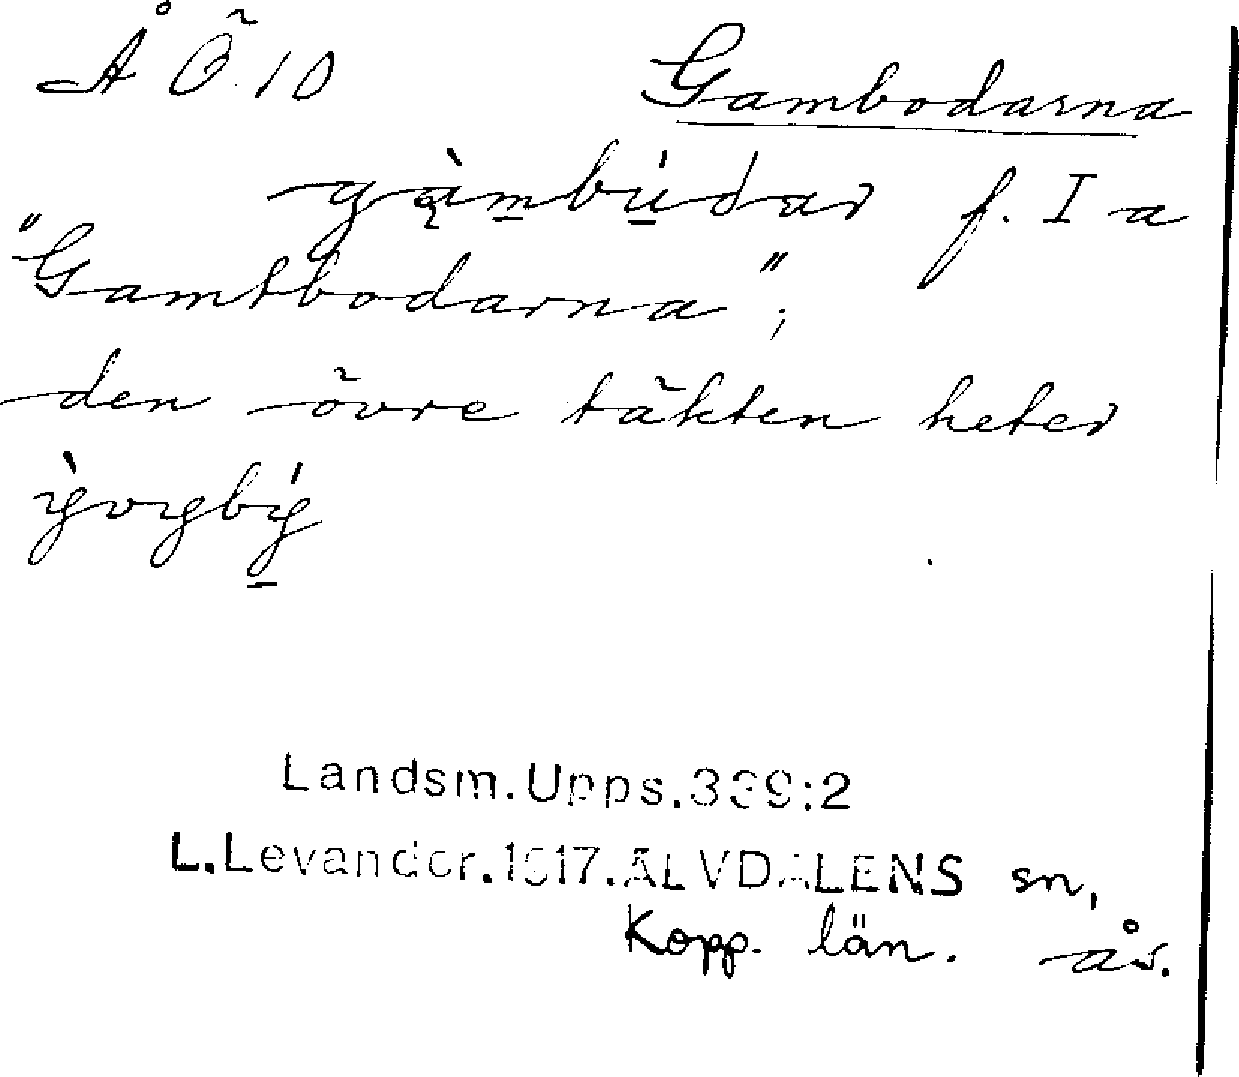 Å Ö 10 Gambodarna
gą̀mbúdar f. I a
"Gamtbodarna";
den övre täkten heter
ỳvybý
Landsm.Upps.339:2
L.Levander.1917.ÄLVDALENS sn,
Kopp. län. ås.